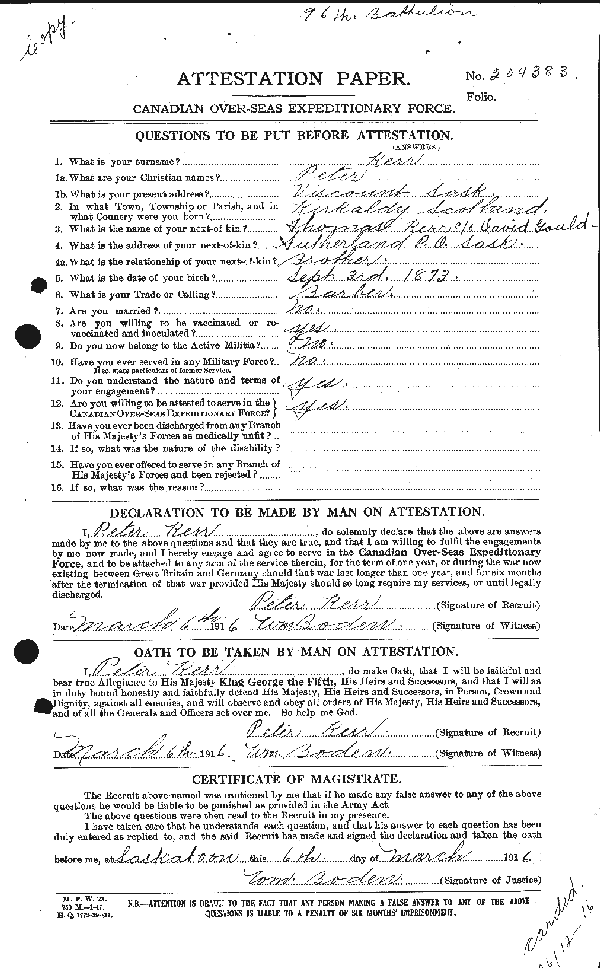 copy.
96th. Battalion
ATTESTATION PAPER.
No. 204383
Folio.
CANADIAN OVER-SEAS EXPEDITIONARY FORCE.
QUESTIONS TO BE PUT BEFORE ATTESTATION.
(ANSWERS)
1. What is your surname? Kerr
1a. What are your Christian names? Peter
1b. What is your present address? Viscount Sask.
2. In what Town, Township or Parish, and in
what Country were you born? Kirkaldy Scotland.
3. What is the name of your next-of kin? Thomas Kerr c/o David Gauld-
4. What is the address of your next-of-kin? Sutherland P.O. Sask.
4a. What is the relationship of your next-of-kin? Brother
5. What is the date of your birth? Sept 3rd. 1873.
6. What is your Trade or Calling? Barber
7. Are you married? no.
8. Are you willing to be vaccinated or re-
vaccinated and inoculated? yes
9. Do you now belong to the Active Militia? no.
10. Have you ever served in any Military Force? no.
If so, state particulars of former Service.
11. Do you understand the nature and terms of
your engagement? yes.
12. Are you willing to be attested to serve in the
CANADIAN OVER-SEAS EXPEDITIONARY FORCE? yes
13. Have you ever been discharged from any Branch
of His Majesty's Forces as medically unfit?
14. If so, what was the nature of the disability?
15. Have you ever offered to serve in any Branch of
His Majesty's Forces and been rejected?
16. If so, what was the reason?
DECLARATION TO BE MADE BY MAN ON ATTESTATION.
I, Peter Kerr, do solemnly declare that the above are answers
made by me to the above questions and that they are true, and that I am willing to fulfil the engagements
by me now made, and I hereby engage and agree to serve in the Canadian Over-Seas Expeditionary
Force, and to be attached to any arm of the service therein, for the term of one year, or during the war now
existing between Great Britain and Germany should that war last longer than one year, and for six months
after the termination of that war provided His Majesty should so long require my services, or until legally
discharged.
Peter Kerr (Signature of Recruit)
Date March 6th 1916 Wm Boden (Signature of Witness)
OATH TO BE TAKEN BY MAN ON ATTESTATION.
I, Peter Kerr, do make Oath, that I will be faithful and
bear true Allegiance to His Majesty King George the Fifth, His Heirs and Successors, and that I will as
in duty bound honestly and faithfully defend His Majesty, His Heirs and Successors, in Person, Crown and
Dignity, against all enemies, and will observe and obey all orders of His Majesty, His Heirs and Successors,
and of all the Generals and Officers set over me. So help me God.
Peter Kerr (Signature of Recruit)
Date March 6th 1916 Wm Boden (Signature of Witness)
CERTIFICATE OF MAGISTRATE.
The Recruit above-named was cautioned by me that if he made any false answer to any of the above
questions he would be liable to be punished as provided in the Army Act.
The above questions were then read to the Recruit in my presence.
I have taken care that he understands each question, and that his answer to each question has been
duly entered as replied to, and the said Recruit has made and signed the declaration and taken the oath
before me, at Saskatoon this 6th day of March 1916
Wm Boden (Signature of Justice)
M. F. W. 23.
H.Q. 1772-39-
N.B.—ATTENTION IS DRAWN TO THE FACT THAT ANY PERSON MAKING A FALSE ANSWER TO ANY OF THE ABOVE
QUESTIONS IS LIABLE TO A PENALTY OF SIX MONTHS' IMPRISONMENT.
Carded